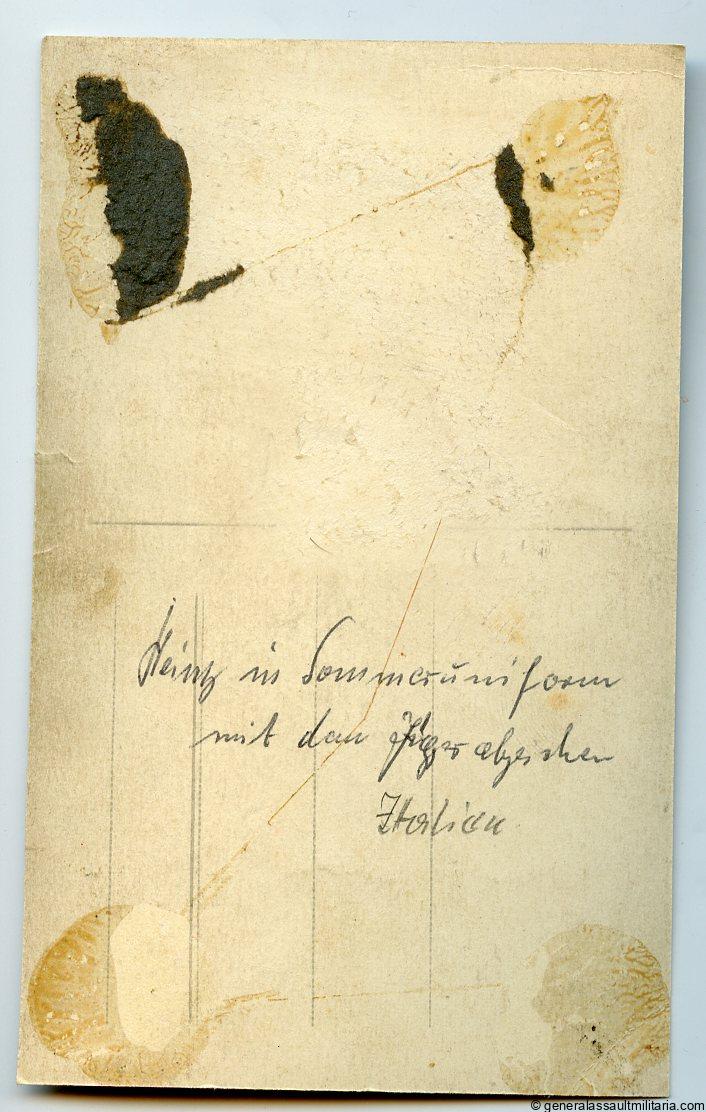 Heintz in Sommeruniform
mit dem Jägerabzeichen
Italien
© generalassaultmilitaria.com